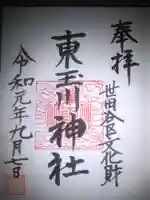 奉拝
世田谷区文化財
東玉川神社
令和元年九月七日